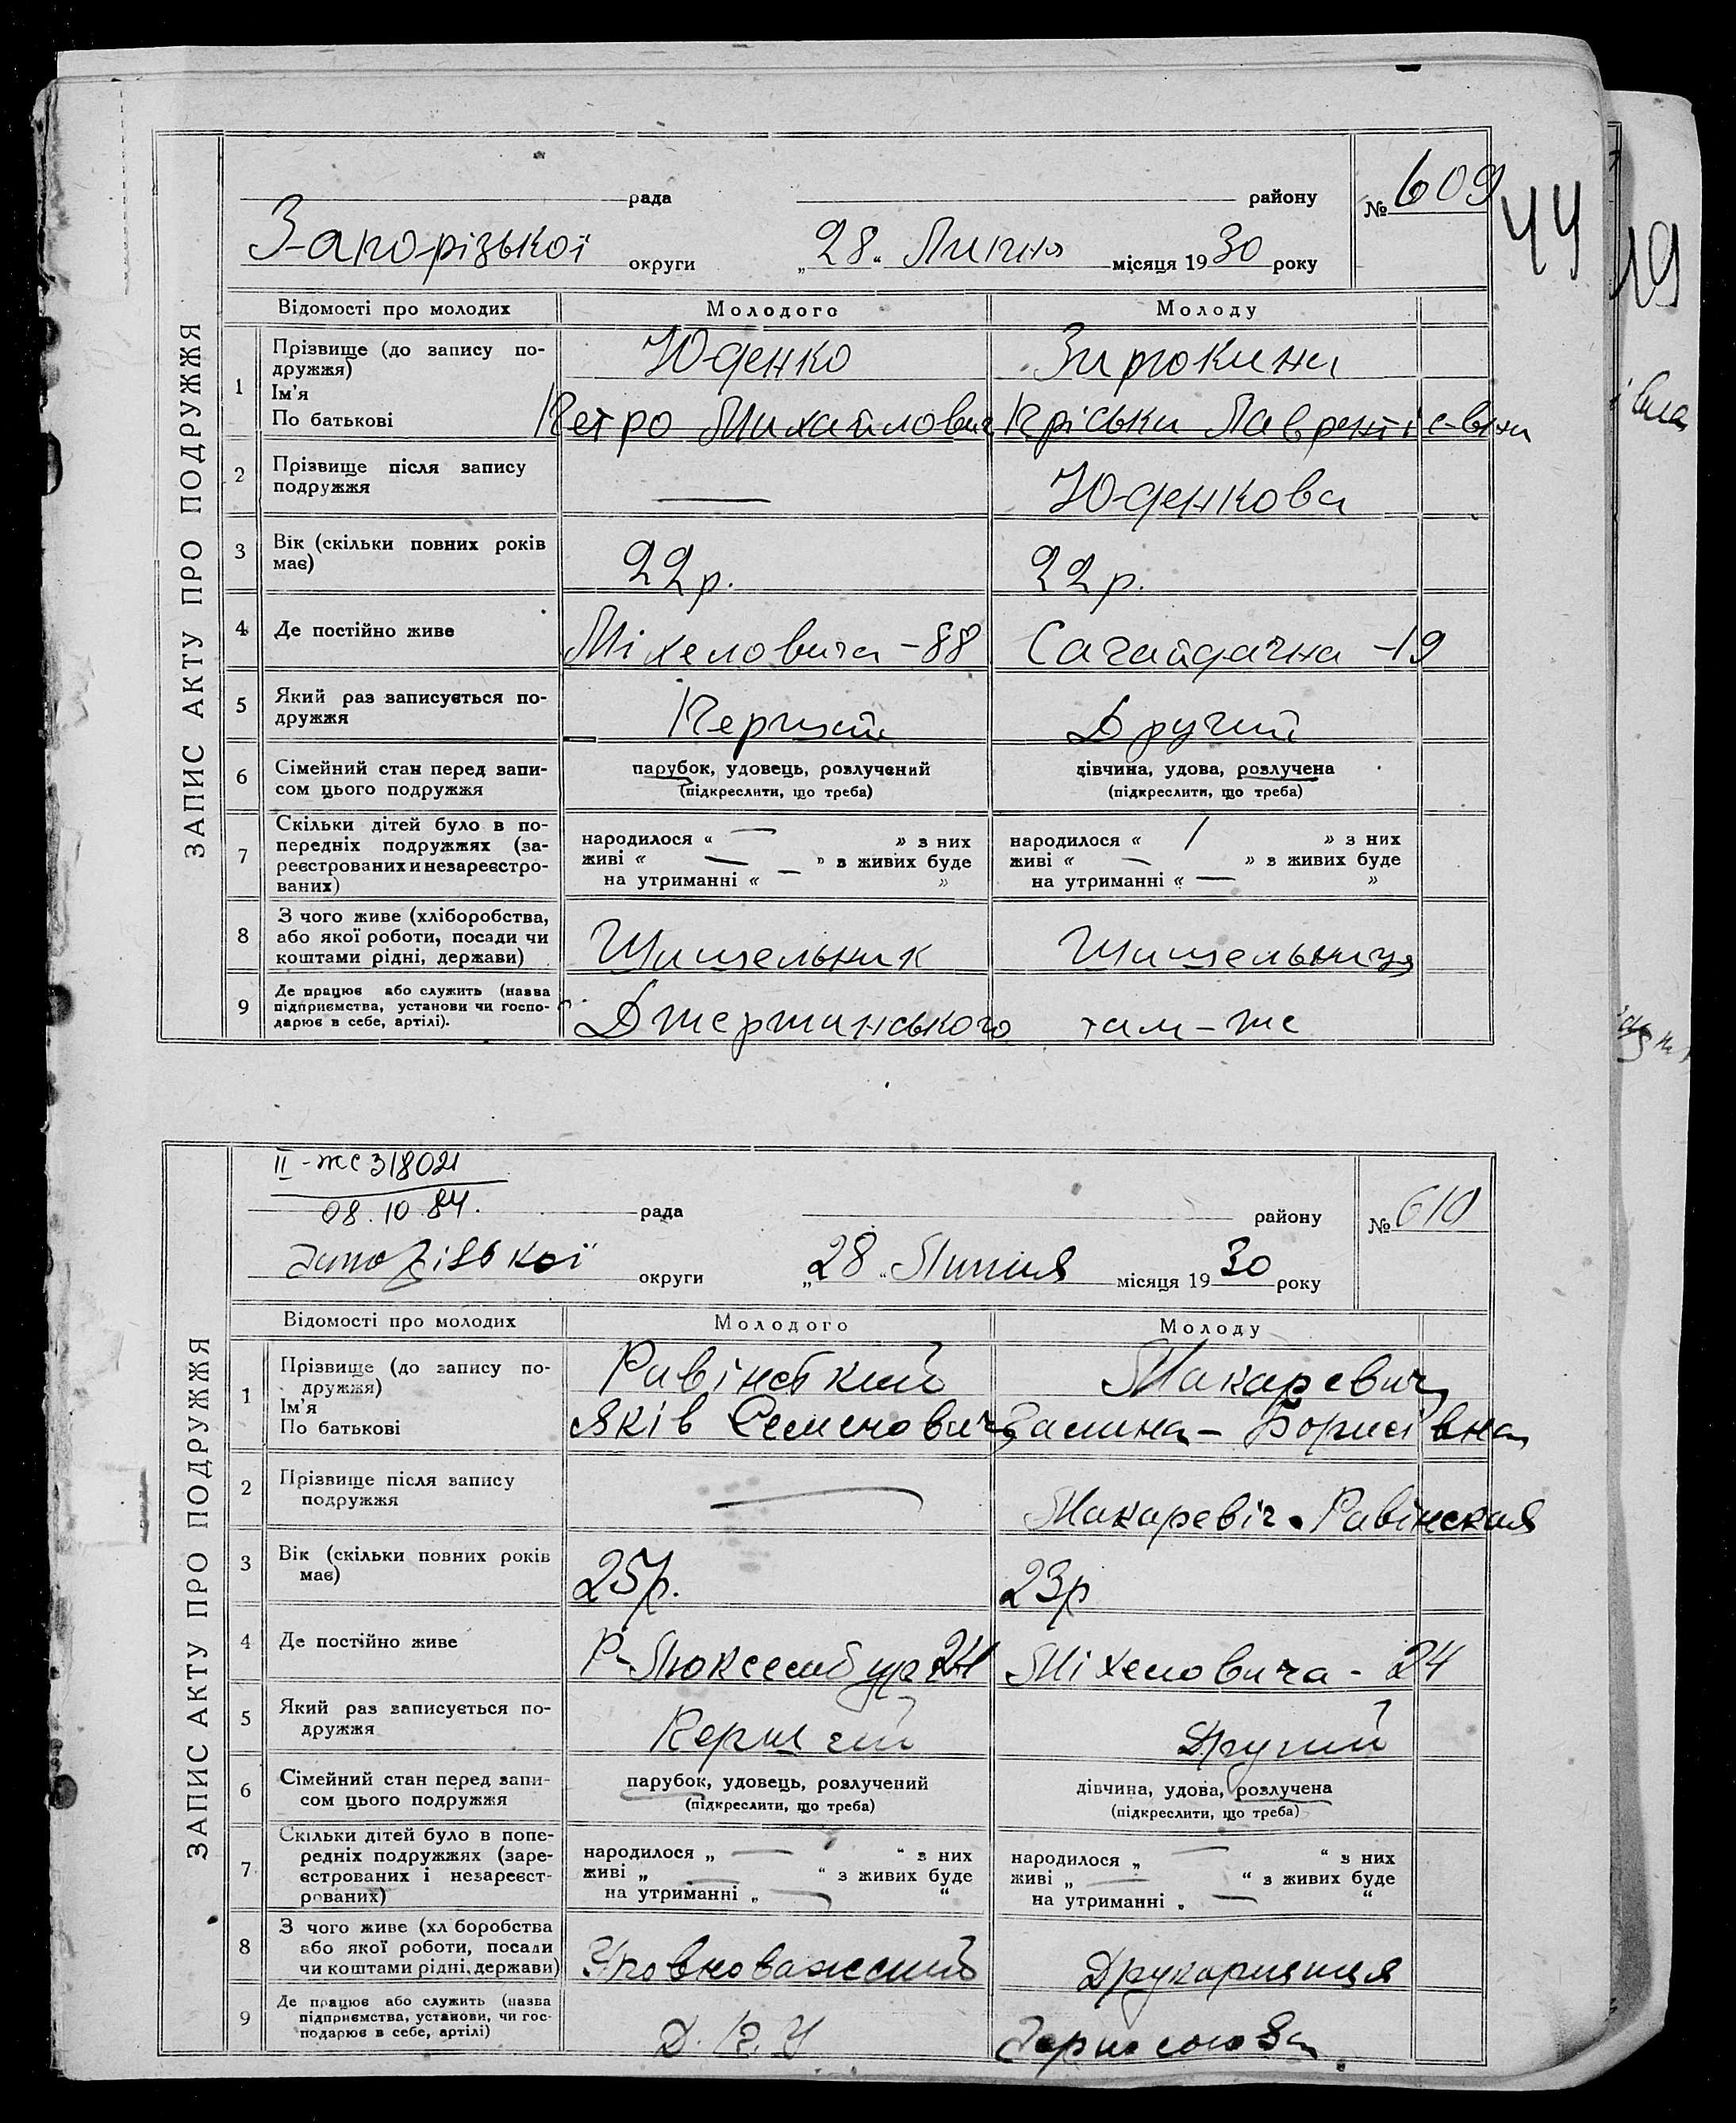 № 609
44
19
рада
району
Запорізької округи „28“ Липня місяця 1930 року
ЗАПИС АКТУ ПРО ПОДРУЖЖЯ
Відомості про молодих
Молодого
Молоду
1
Прізвище (до запису по-
дружжя)
Ім'я
По батькові
Юденко
Петро Михайлович
Лаврентієвна
2
Прізвище після запису
подружжя
—
Юденкова
3
Вік (скільки повних років
має)
22р.
22р.
4
Де постійно живе
Міхеловича -88
Сагайдачна -19
5
Який раз записується по-
дружжя
Перший
Другий
6
Сімейний стан перед запи-
сом цього подружжя
парубок, удовець, розлучений
(підкреслити, що треба)
дівчина, удова, розлучена
(підкреслити, що треба)
7
Скільки дітей було в по-
передніх подружжях (за-
реєстрованих и незареєстро-
ваних)
народилося « — » з них
живі « — » з живих буде
на утриманні « — »
народилося « / » з них
живі « — » з живих буде
на утриманні « — »
8
З чого живе (хліборобства,
або якої роботи, посади чи
коштами рідні, держави)
Шишельник
Шишельниця
9
Де працює або служить (назва
підприємства, установи чи госпо-
дарює в себе, артілі).
Джержинського
там-же
II-ЖС 318021
08.10.84.
№ 610
рада
району
Запорізької округи „28“ Липня місяця 1930 року
ЗАПИС АКТУ ПРО ПОДРУЖЖЯ
Відомості про молодих
Молодого
Молоду
1
Прізвище (до запису по-
дружжя)
Ім'я
По батькові
Равінський
Яків Семенович
Макаревич
Борисівна
2
Прізвище після запису
подружжя
—
Макаревіч-Равінская
3
Вік (скільки повних років
має)
25р.
23р
4
Де постійно живе
Р-Люксембург 24
Міхеловича - 24
5
Який раз записується по-
дружжя
Перший
Другий
6
Сімейний стан перед запи-
сом цього подружжя
парубок, удовець, розлучений
(підкреслити, що треба)
дівчина, удова, розлучена
(підкреслити, що треба)
7
Скільки дітей було в попе-
редніх подружжях (заре-
єстрованих і незареєст-
рованих)
народилося „ — “ з них
живі „ — “ з живих буде
на утриманні „ — “
народилося „ — “ з них
живі „ — “ з живих буде
на утриманні „ — “
8
З чого живе (хл боробства
або якої роботи, посади
чи коштами рідні, держави)
Уповноважений
Друкарниця
9
Де працює або служить (назва
підприємства, установи, чи гос-
подарює в себе, артілі)
Д.П.У